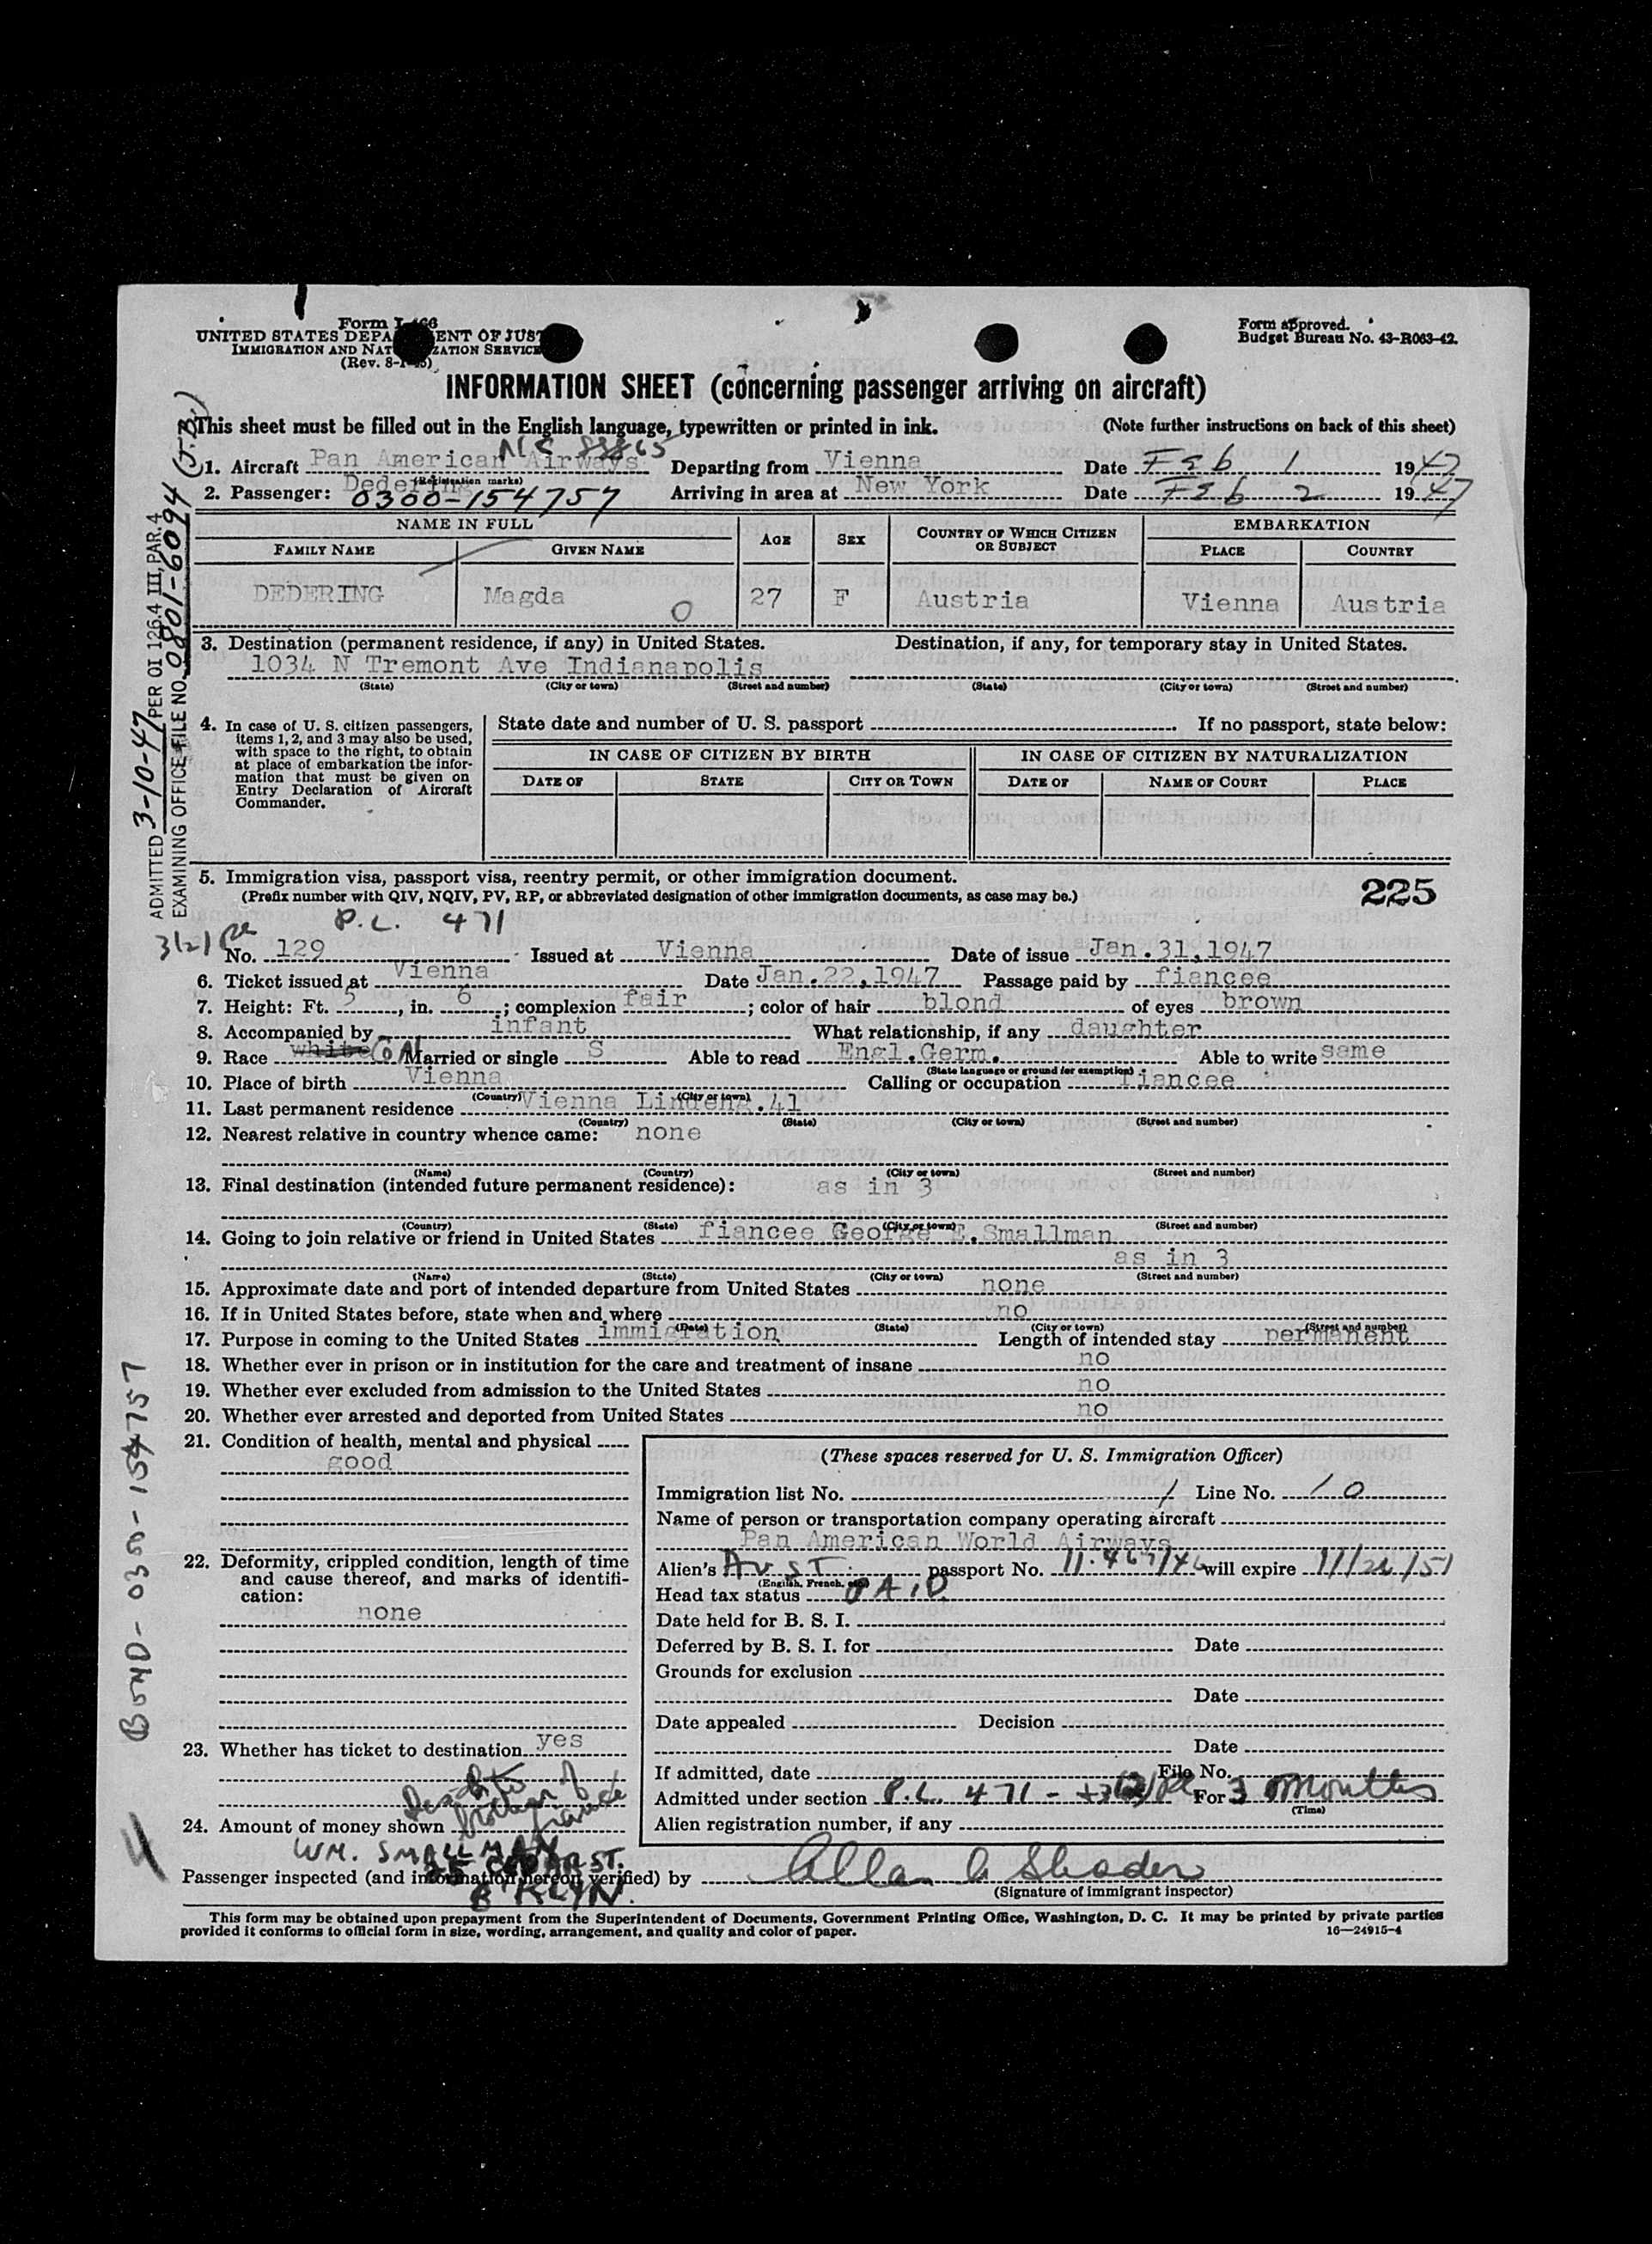 Form I-466
UNITED STATES DEPARTMENT OF JUSTICE
IMMIGRATION AND NATURALIZATION SERVICE
(Rev. 8-1-45)
Form approved.
Budget Bureau No. 43-R063-42.
INFORMATION SHEET (concerning passenger arriving on aircraft)
This sheet must be filled out in the English language, typewritten or printed in ink. (Note further instructions on back of this sheet)
NC 88865
1. Aircraft Pan American Airways Departing from Vienna Date Feb 1 1947
(Registration marks)
2. Passenger: Dedering 0300-154757 Arriving in area at New York Date Feb 2 1947
NAME IN FULL AGE SEX COUNTRY OF WHICH CITIZEN OR SUBJECT EMBARKATION
FAMILY NAME GIVEN NAME PLACE COUNTRY
DEDERING Magda 0 27 F Austria Vienna Austria
3. Destination (permanent residence, if any) in United States. Destination, if any, for temporary stay in United States.
1034 N Tremont Ave Indianapolis
(State) (City or town) (Street and number) (State) (City or town) (Street and number)
4. In case of U. S. citizen passengers, items 1, 2, and 3 may also be used, with space to the right, to obtain at place of embarkation the information that must be given on Entry Declaration of Aircraft Commander.
State date and number of U. S. passport If no passport, state below:
IN CASE OF CITIZEN BY BIRTH IN CASE OF CITIZEN BY NATURALIZATION
DATE OF STATE CITY OR TOWN DATE OF NAME OF COURT PLACE
5. Immigration visa, passport visa, reentry permit, or other immigration document.
(Prefix number with QIV, NQIV, PV, RP, or abbreviated designation of other immigration documents, as case may be.)
225
P.L. 471
No. 129 Issued at Vienna Date of issue Jan.31,1947
6. Ticket issued at Vienna Date Jan.22,1947 Passage paid by fiancee
7. Height: Ft. 5, in. 6; complexion fair; color of hair blond of eyes brown
8. Accompanied by infant What relationship, if any daughter
9. Race white Married or single S Able to read Engl.Germ. Able to write same
(State language or ground for exemption)
10. Place of birth Vienna Calling or occupation fiancee
(Country) (City or town)
11. Last permanent residence Vienna Lindeng.41
(Country) (State) (City or town) (Street and number)
12. Nearest relative in country whence came: none
(Name) (Country) (City or town) (Street and number)
13. Final destination (intended future permanent residence): as in 3
(Country) (State) (City or town) (Street and number)
14. Going to join relative or friend in United States fiancee George E.Smallman
as in 3
(Name) (State) (City or town) (Street and number)
15. Approximate date and port of intended departure from United States none
16. If in United States before, state when and where no
(Date) (State) (City or town) (Street and number)
17. Purpose in coming to the United States immigration Length of intended stay permanent
18. Whether ever in prison or in institution for the care and treatment of insane no
19. Whether ever excluded from admission to the United States no
20. Whether ever arrested and deported from United States no
21. Condition of health, mental and physical
good
22. Deformity, crippled condition, length of time and cause thereof, and marks of identification:
none
23. Whether has ticket to destination yes
Brother of
fiancée
24. Amount of money shown
WM. SMALLMAN
CEDAR ST.
B'KLYN.
(These spaces reserved for U. S. Immigration Officer)
Immigration list No. 1 Line No. 10
Name of person or transportation company operating aircraft
Pan American World Airways
Alien's AUST. passport No. 11.467/46 will expire 11/21/51
(English, French, etc.)
Head tax status PAID
Date held for B. S. I.
Deferred by B. S. I. for Date
Grounds for exclusion
Date
Date appealed Decision
Date
If admitted, date File No.
Admitted under section P.L. 471 - For 3 Months
(Time)
Alien registration number, if any
Passenger inspected (and information hereon verified) by Allan A Shader
(Signature of immigrant inspector)
This form may be obtained upon prepayment from the Superintendent of Documents, Government Printing Office, Washington, D. C. It may be printed by private parties
provided it conforms to official form in size, wording, arrangement, and quality and color of paper. 16—24915-4
ADMITTED 3-10-47 PER OI 126.4 III, PAR. 4
EXAMINING OFFICE FILE NO. 0801-6094 (J.B.)
BOND- 0300-154757